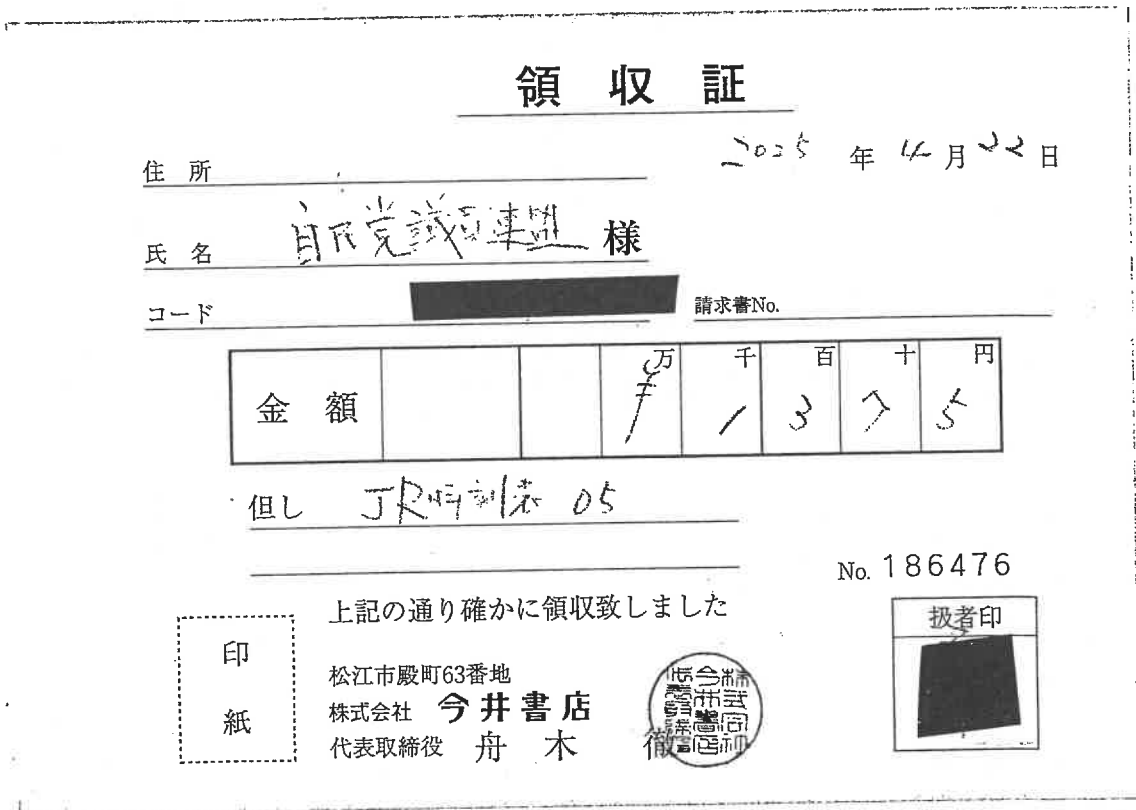 領収証
2025年4月22日
住所
氏名 自民党議員連盟 様
コード
請求書No.
金額 万 千 百 十 円
¥1375
但し JR時刻表 05
No. 186476
上記の通り確かに領収致しました
扱者印
印紙
松江市殿町63番地
株式会社 今井書店
代表取締役 舟木 徹